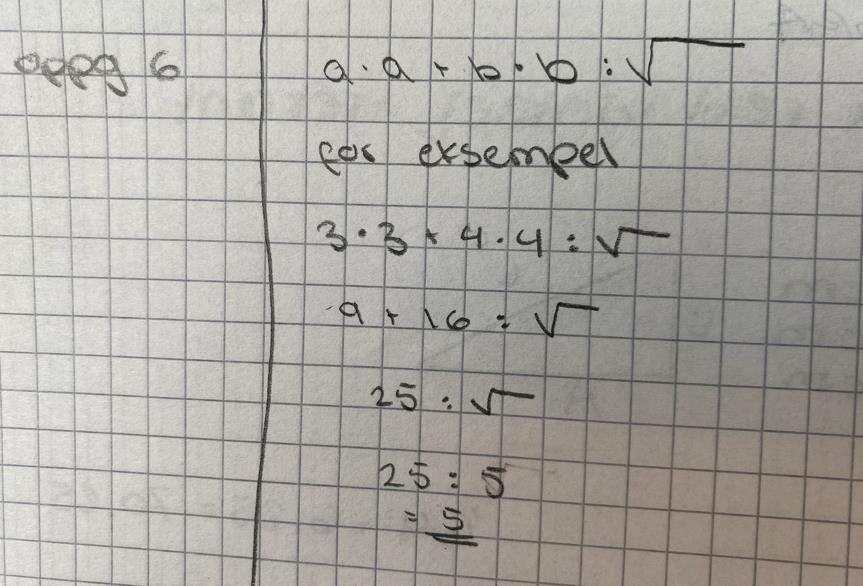 oppg 6
a · a + b · b : √
for exsempel
3 · 3 + 4 · 4 : √
9 + 16 : √
25 : √
25 : 5
= 5